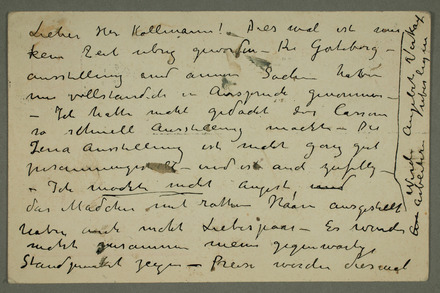 Lieber Her Kollmann! Dies mal ist mir
kein Zeit ubrig geworden – Die Goteborg –
ausstellung und annen Sachen haben
me vollstandich in Anspruch genommen
– Ich hatte nicht gedacht das Cassirer
so schnell Ausstellung machte – Die
Jena Ausstellung ist nicht ganz gut
– und ist auch zufallig –
– Ich mochte nicht
das Madchen mit rothen Haar ausgestellt
haben und nicht Liebespaar – Es wurde
nicht zusammen meine gegenwartige
Standpunkt zeigen – Preise werden diesmal